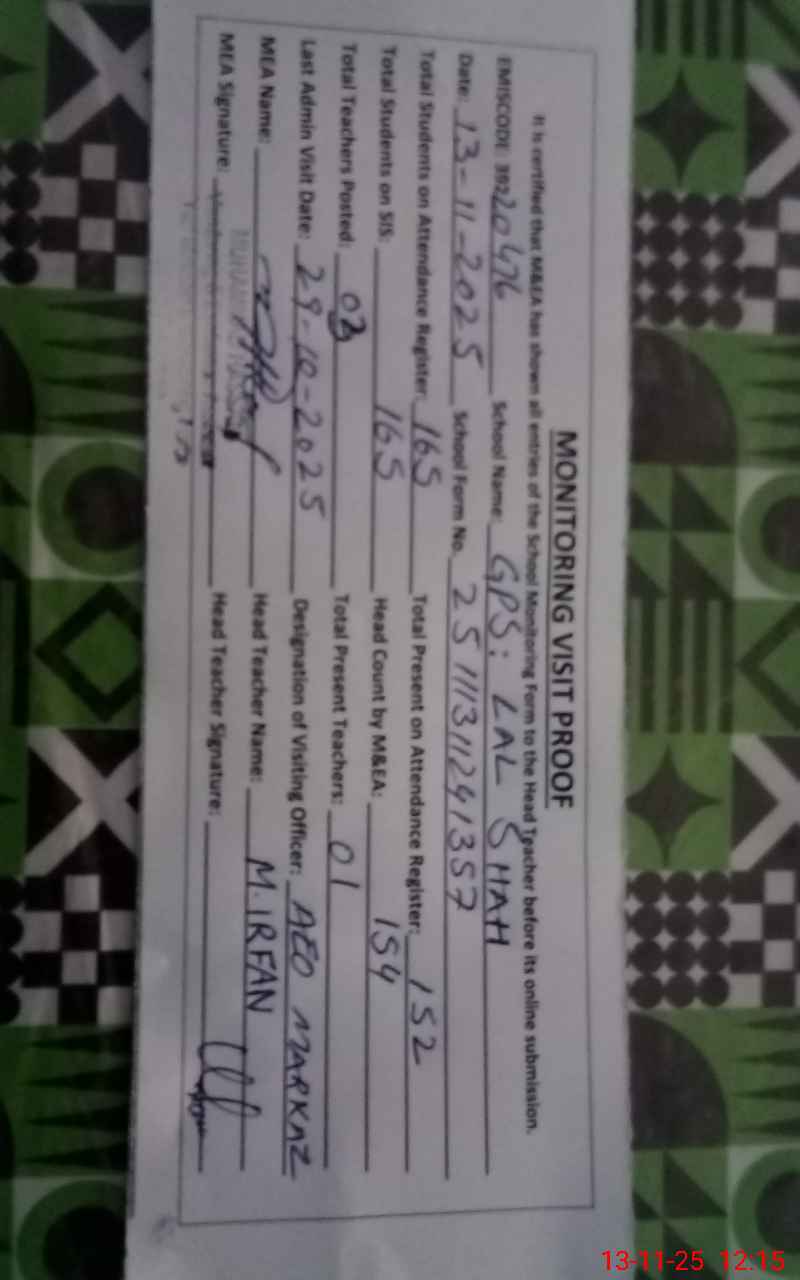 MONITORING VISIT PROOF
It is certified that M&EA has shown all entries of the School Monitoring Form to the Head Teacher before its online submission.
EMISCODE: 39220476 School Name: GPS: LAL SHAH
Date: 13-11-2025 School Form No. 2511131241357
Total Students on Attendance Register: 165 Total Present on Attendance Register: 152
Total Students on SIS: 165 Head Count by M&EA: 154
Total Teachers Posted: 03 Total Present Teachers: 01
Last Admin Visit Date: 29-10-2025 Designation of Visiting Officer: AEO MARKAZ
MEA Name: Head Teacher Name: M.IRFAN
MEA Signature: Head Teacher Signature:
13-11-25 12:15